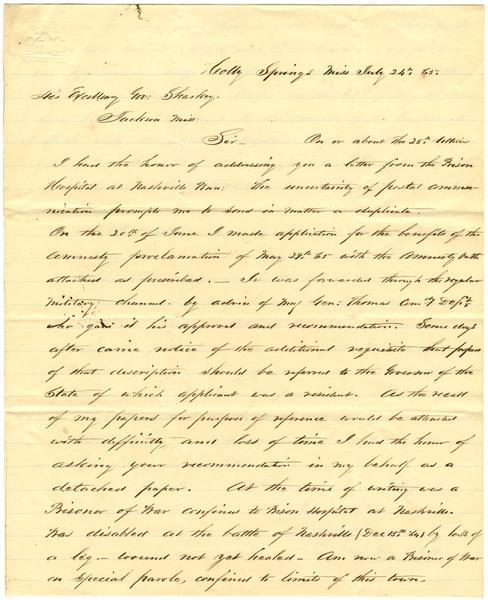 Holly Springs Miss July 24th 65.
His Excellency Gov: Sharkey.
Jackson Miss.
Sir— On or about the 25th Ultimo
I had the honor of addressing you a letter from the Prison
Hospital at Nashville Tenn: The uncertainty of postal commu-
nication prompts me to send in matter a duplicate.
On the 20th of June I made application for the benefits of the
Amnesty proclamation of May 29th 65 with the Amnesty oath
attached as prescribed. — It was forwarded through the regular
military channel by advice of Maj Gen: Thomas Com: of Dept:
who gave it his approval and recommendation. Some days
after came notice of the additional requisite that papers
of that description should be referred to the Governor of the
State of which applicant was a resident. As the recall
of my papers for purpose of reference would be attended
with difficulty and loss of time I had the honor of
asking your recommendation in my behalf as a
detached paper. At the time of writing was a
Prisoner of War confined to Prison Hospital at Nashville.
Was disabled at the battle of Nashville (Dec 15th 64) by loss of
a leg — wound not yet healed — Am now a Prisoner of War
on Special parole, confined to limits of this town.